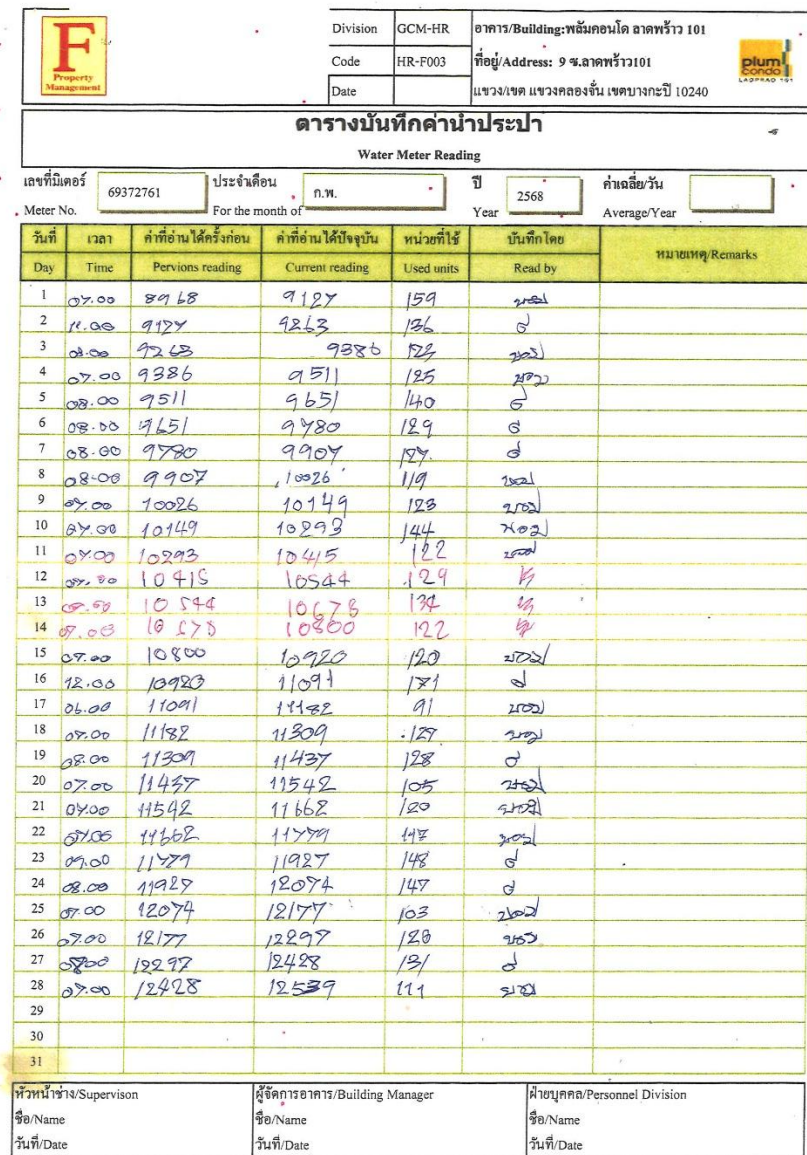 F
Property
Management
Division GCM-HR อาคาร/Building:พลัมคอนโด ลาดพร้าว 101
Code HR-F003 ที่อยู่/Address: 9 ซ.ลาดพร้าว101
Date แขวง/เขต แขวงคลองจั่น เขตบางกะปิ 10240
plum
condo
LADPRAO 101
ตารางบันทึกค่าน้ำประปา
Water Meter Reading
เลขที่มิเตอร์ 69372761 ประจำเดือน ก.พ. ปี 2568 ค่าเฉลี่ย/วัน
Meter No. For the month of Year Average/Year
วันที่ เวลา ค่าที่อ่านได้ครั้งก่อน ค่าที่อ่านได้ปัจจุบัน หน่วยที่ใช้ บันทึกโดย หมายเหตุ/Remarks
Day Time Pervions reading Current reading Used units Read by
1 07.00 8968 9127 159
2 11.00 9127 9263 136
3 08.00 9263 9386 123
4 07.00 9386 9511 125
5 08.00 9511 9651 140
6 08.00 9651 9780 129
7 08.00 9780 9907 127
8 08.00 9907 10026 119
9 07.00 10026 10149 123
10 07.00 10149 10293 144
11 07.00 10293 10415 122
12 07.00 10415 10544 129
13 07.00 10544 10678 134
14 07.00 10678 10800 122
15 07.00 10800 10920 120
16 12.00 10920 11091 171
17 06.00 11091 11182 91
18 07.00 11182 11309 127
19 08.00 11309 11437 128
20 07.00 11437 11542 105
21 07.00 11542 11662 120
22 07.00 11662 11779 117
23 09.00 11779 11927 148
24 08.00 11927 12074 147
25 07.00 12074 12177 103
26 07.00 12177 12297 120
27 0800 12297 12428 131
28 07.00 12428 12539 111
29
30
31
หัวหน้าช่าง/Supervison ผู้จัดการอาคาร/Building Manager ฝ่ายบุคคล/Personnel Division
ชื่อ/Name ชื่อ/Name ชื่อ/Name
วันที่/Date วันที่/Date วันที่/Date